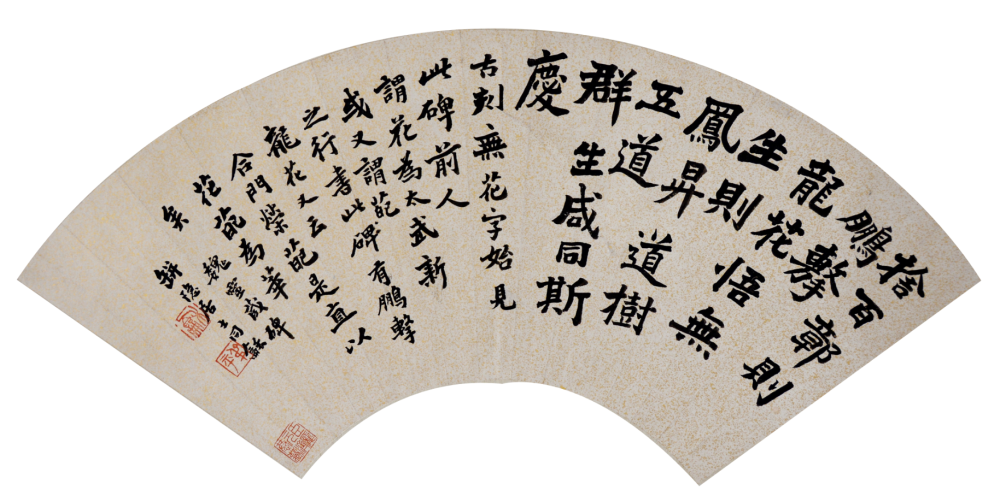 捨百鄣則
鵬擊
龍花悟無
生則
鳳昇道樹
五道
群生咸同斯
慶
古刻無花字始見
此碑前人
謂花為太武新
或又謂葩
之行書此碑有鵬擊
龍花又云
合門榮葩是直以
花葩為華
矣
魏靈藏碑
缾隱居士同龢